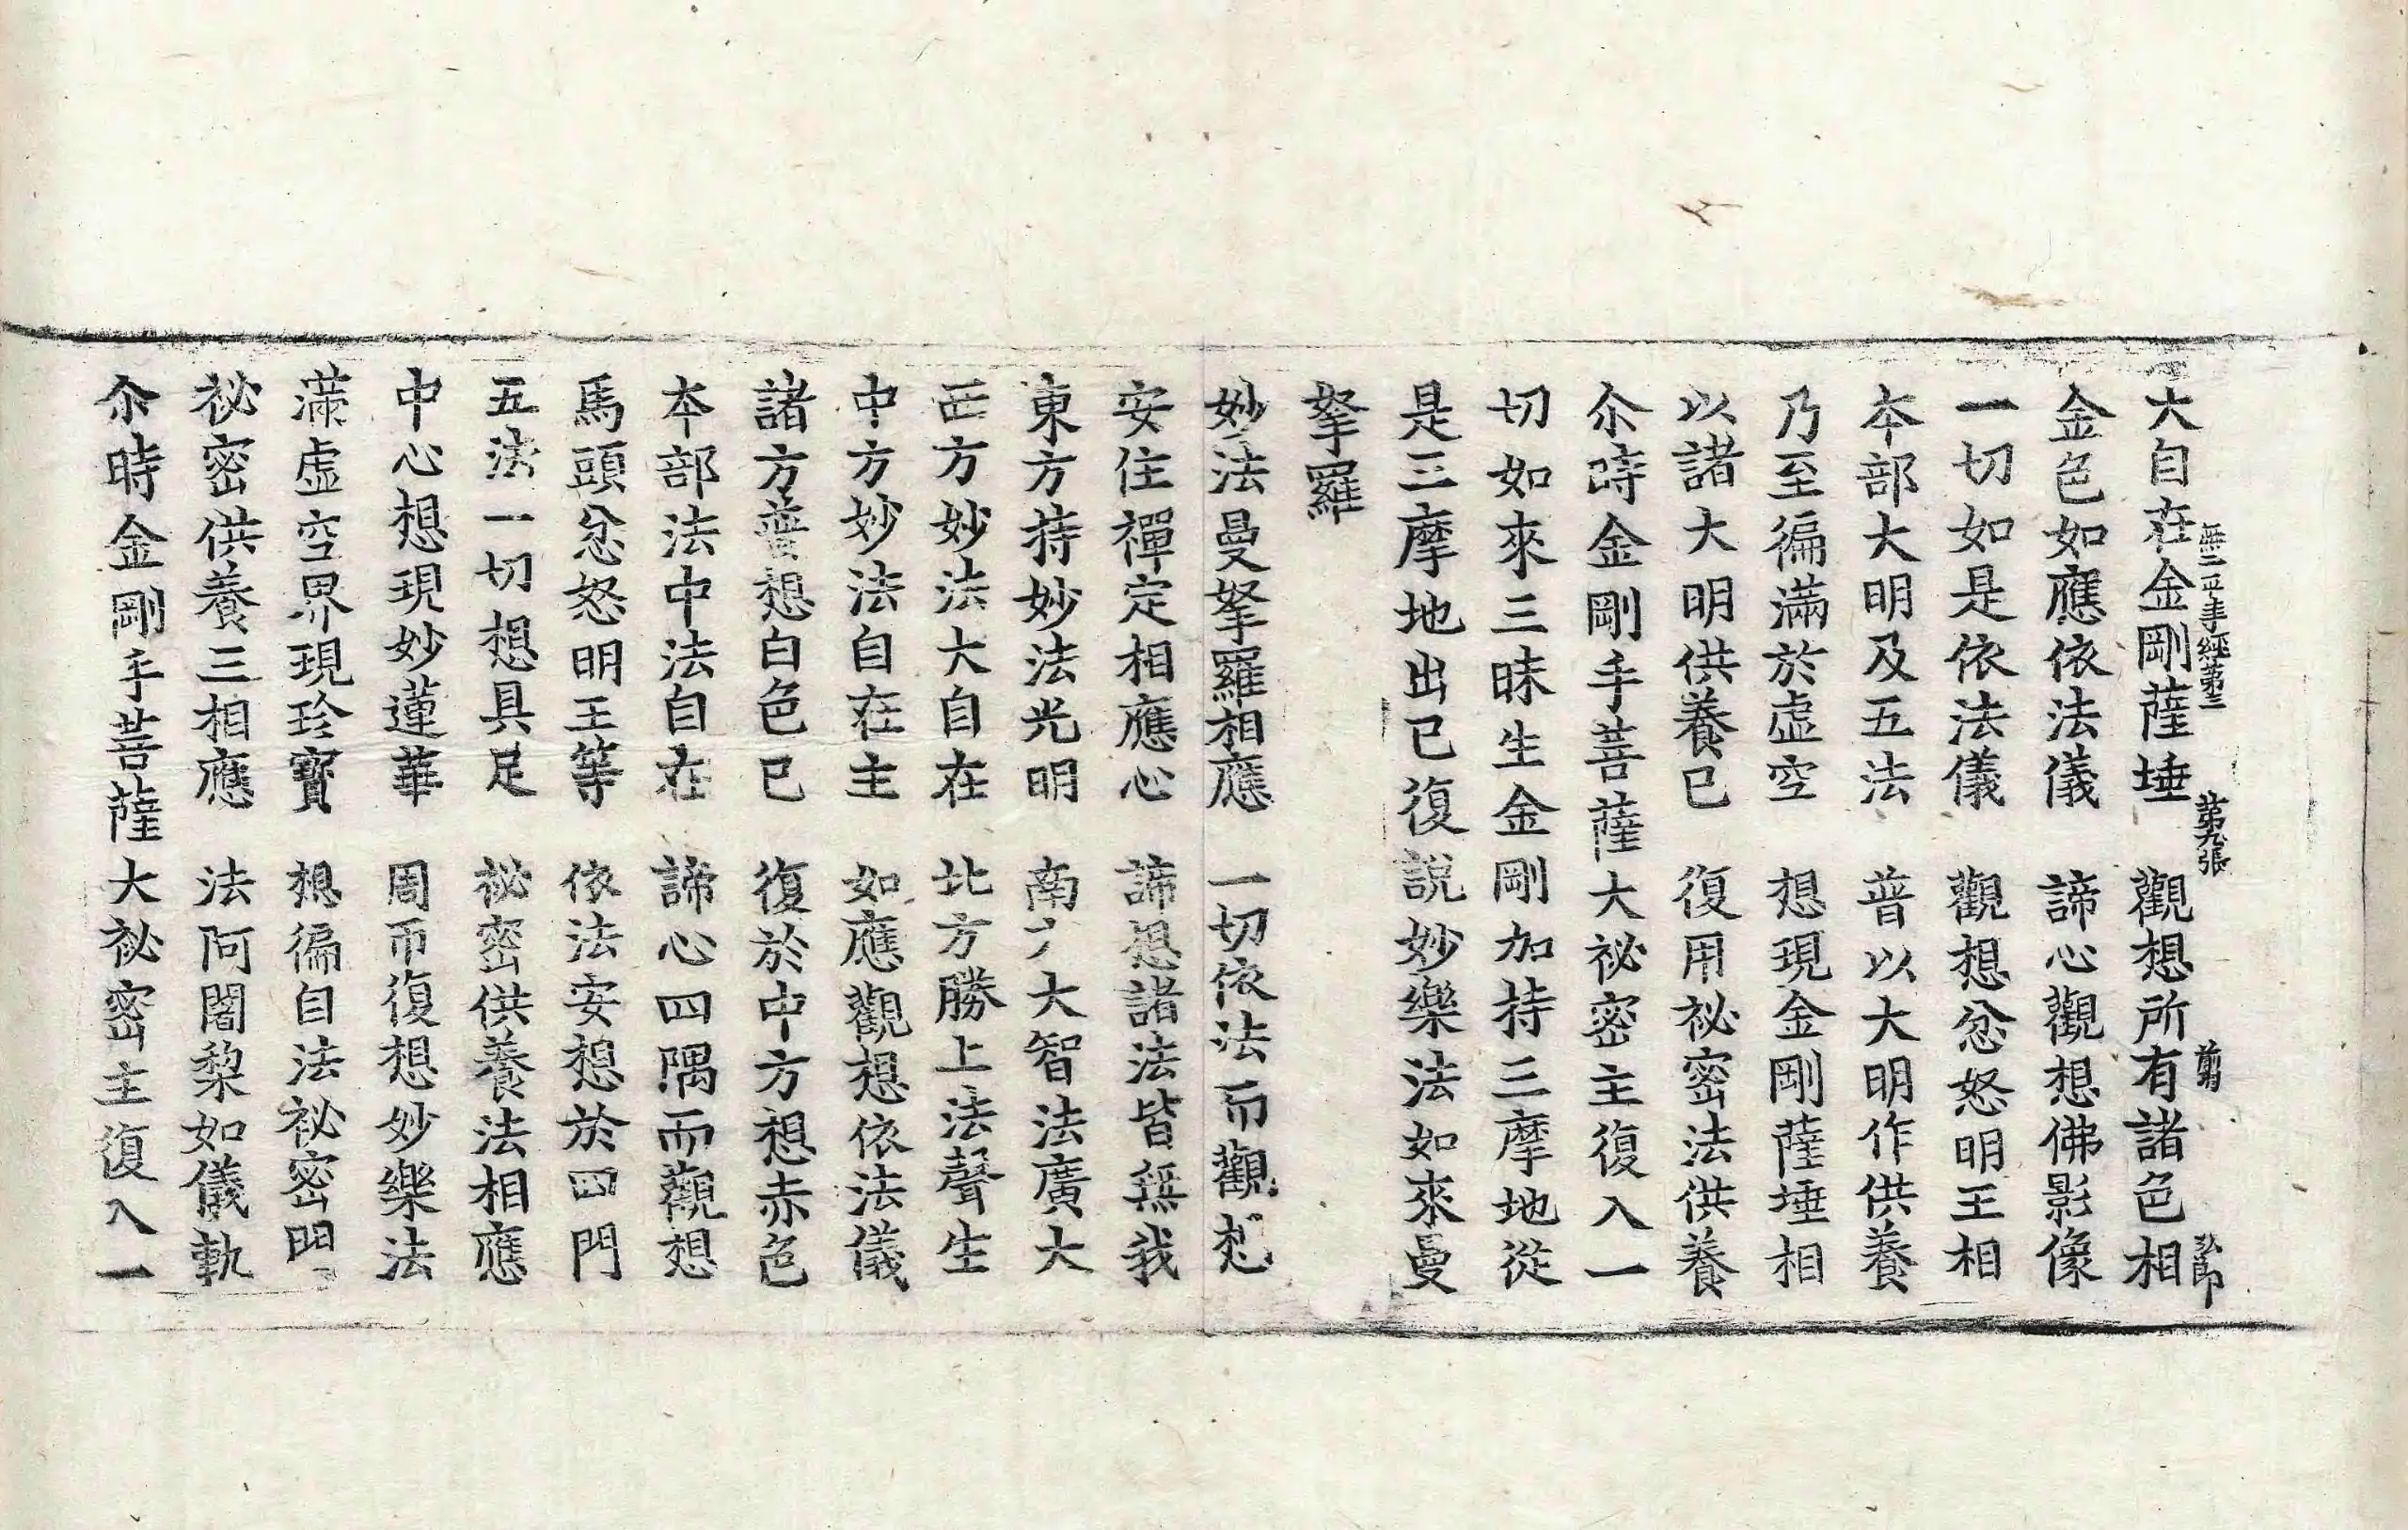 無二平等經第三　第九張　前　弘郎
大自在金剛薩埵　觀想所有諸色相
金色如應依法儀　諦心觀想佛影像
一切如是依法儀　觀想忿怒明王相
本部大明及五法　普以大明作供養
乃至徧滿於虛空　想現金剛薩埵相
以諸大明供養已　復用祕密法供養
尒時金剛手菩薩大祕密主復入一
切如來三昧生金剛加持三摩地從
是三摩地出已復說妙樂法如來曼
拏羅
妙法曼拏羅相應　一切依法而觀想
安住禪定相應心　諦想諸法皆無我
東方持妙法光明　南方大智法廣大
西方妙法大自在　北方勝上法聲生
中方妙法自在主　如應觀想依法儀
諸方普想白色已　復於中方想赤色
本部法中法自在　諦心四隅而觀想
馬頭忿怒明王等　依法安想於四門
五法一切想具足　祕密供養法相應
中心想現妙蓮華　周帀復想妙樂法
滿虛空界現珍寶　想徧自法祕密門
祕密供養三相應　法阿闍黎如儀軌
尒時金剛手菩薩大祕密主復入一